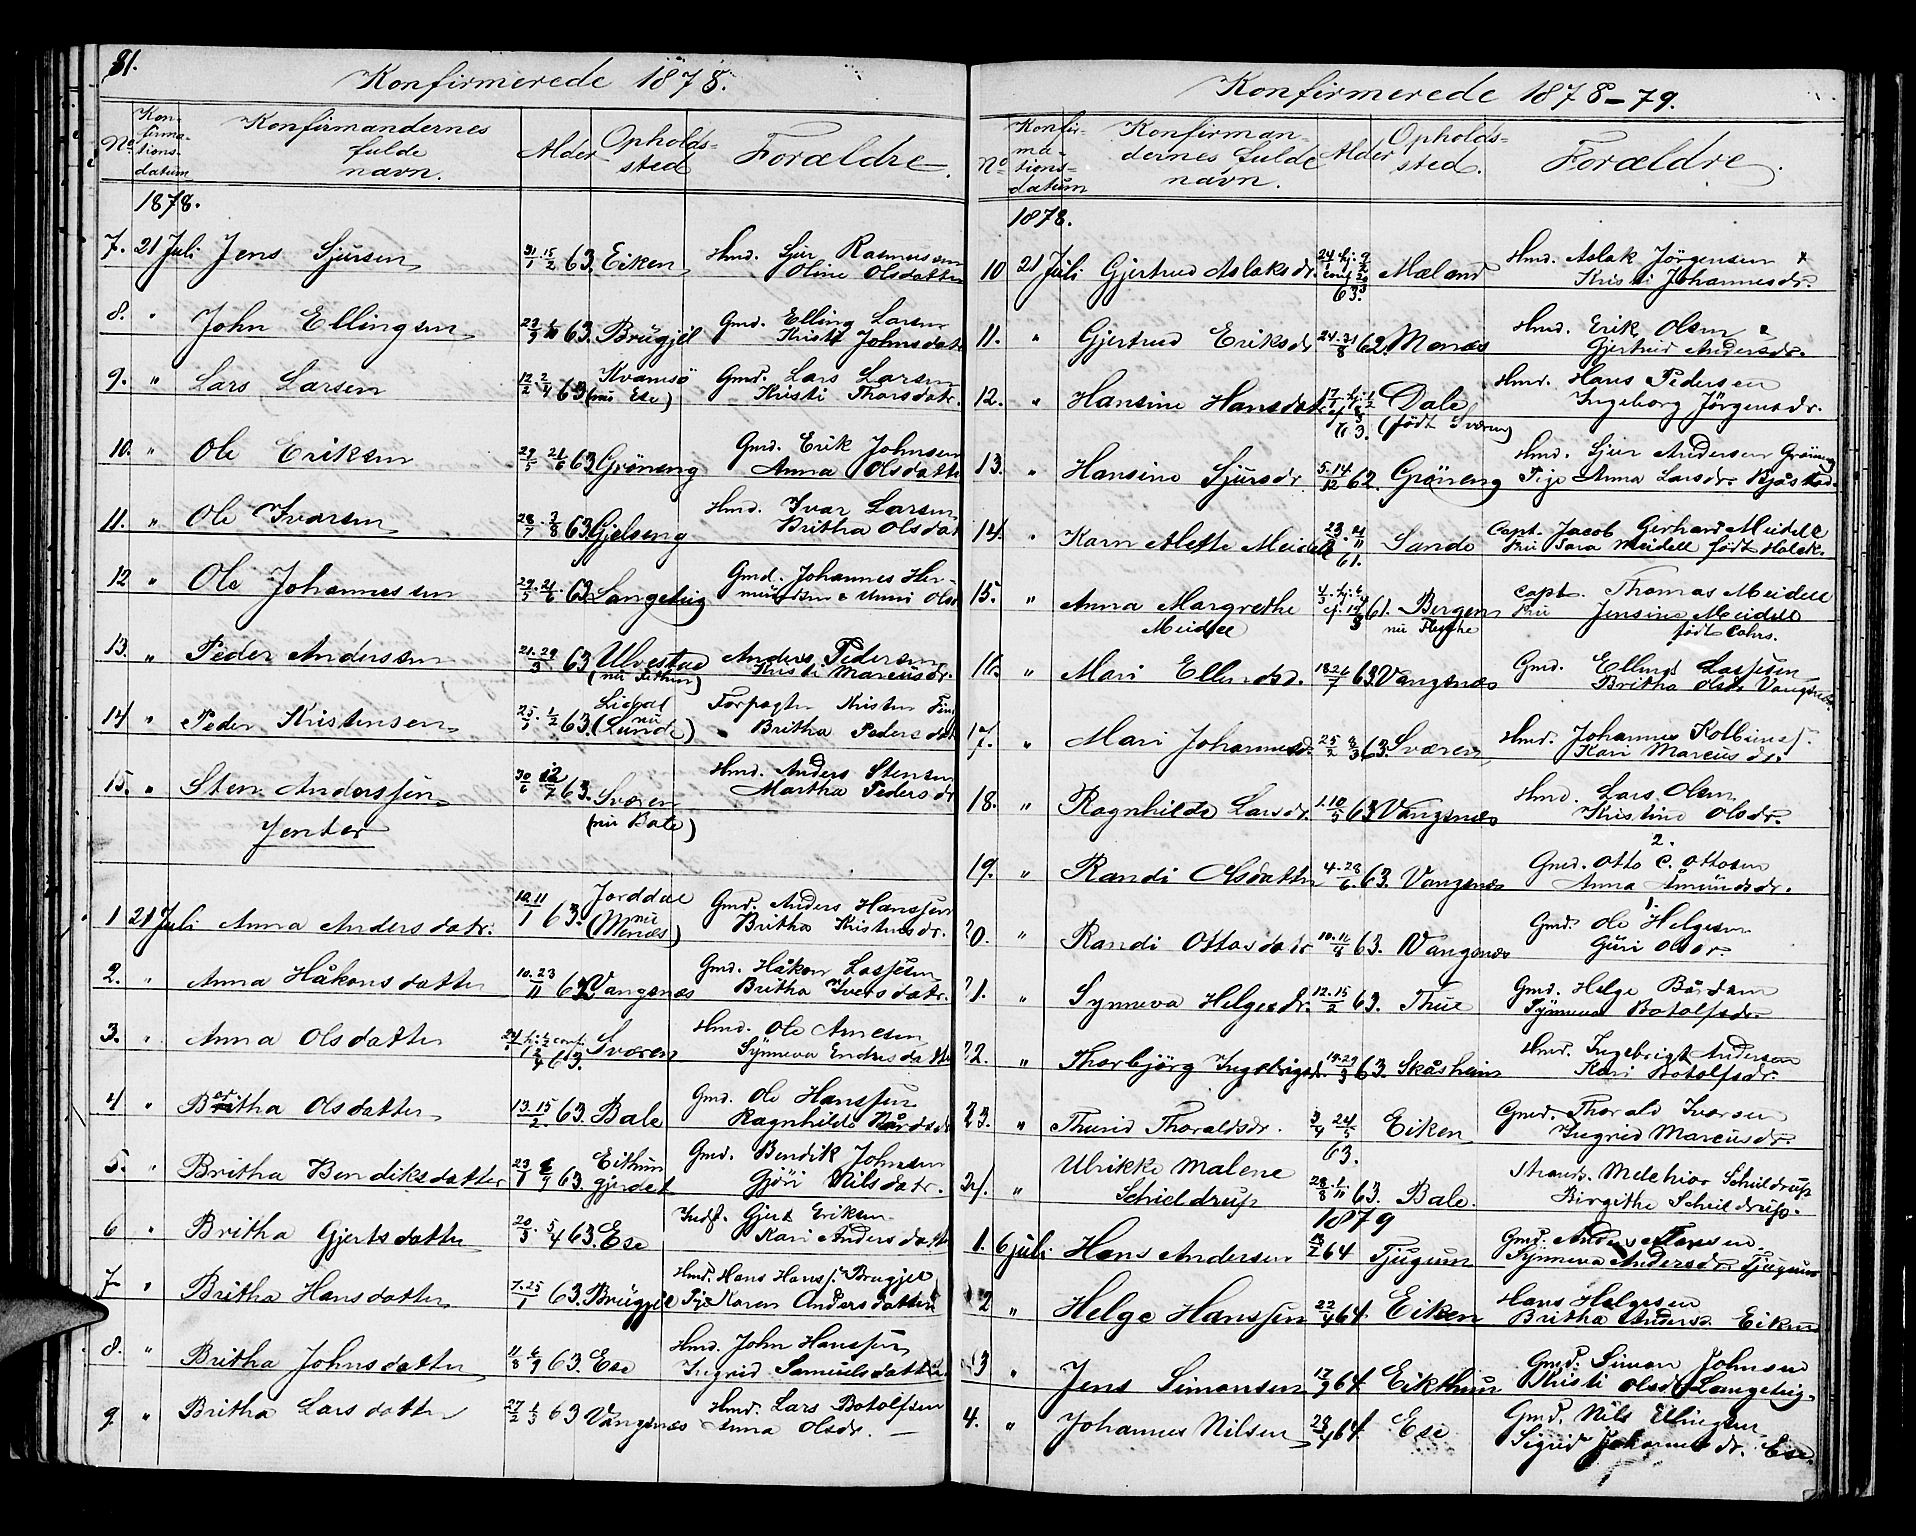 81.
Konfirmerede 1878.
No Kon-firma-tions-datum Konfirmandernes fulde navn. Alder Opholds-sted Forældre.
1878.
7. 21 Juli Jens Sjursen 31/1 15/2 63. Eiken Hmd. Sjur Rasmussen
Oline Olsdatter
8. " John Ellingsen 63. Brügjel Gmd. Elling Larsen
Kristi Johnsdatr
9. " Lars Larsen 12/2 2/4 63 Kvamsö (nu Ese) Gmd. Lars Larsen
Kristi Thorsdatr.
10. " Ole Eriksen 29/5 21/6 63 Gröneng Gmd. Erik Johnsen
Anna Olsdatter
11. " Ole Ivarsen 28/7 3/8 63 Gjelseng Hmd. Ivar Larsen
Britha Olsdat
12 " Ole Johannessen 29/5 21/6 63 Langeteig Gmd. Johannes Her-
13. " Peder Anderssen 21. 29/3 63 Ulvestad Anders Pedersen
Kristi Marcusdr.
14 " Peder Kristensen 25/1 1/2 63. Lidal (nu Lunde) Forpagter Kristen
Britha Pedersdatr
15. " Sten Anderssen 30/6 12/7 63. Sværen (nu Bale) Hmd. Anders Stensen
Martha Pedersdr
Jenter
1 21 Juli Anna Andersdatr. 10. 11/1 63. Jorddal (nu Menæs) Gmd. Anders Hanssen
Britha Kristensdr.
2. " Anna Håkonsdatter 10. 23/11 62 Vangsnæs Gmd. Håkon Lassesen
Britha Iversdatr.
3. " Anna Olsdatter 63. Sværen Hmd. Ole Arnesen
Synneva Endresdatter
4 " Britha Olsdatter 13. 15/2 63 Bale Gmd. Ole Hanssen
Ragnhilde Bårdsdr
5. " Britha Bendiksdatter 23/8 6/9 63. Eithun gjerdet Gmd. Bendik Johnsen
Gjöri Nilsdatr.
6 " Britha Gjertsdatter 20/3 5/4 63. Ese Indst. Gjert Eriksen
Kari Andersdatter
7 " Britha Hansdatter 7. 25/1 63. Brügjel Hmd. Hans Hanss. Brugjel
Pige Karen Andersdatter
8. " Britha Johnsdatter 11/8 6/9 63. Ese Hmd. John Hanssen
Ingrid Samuelsdatter
9 " Britha Larsdatter 27/2 1/3 63 Vangsnæs Hmd. Lars Botolfsen
Anna Olsdr.
Konfirmerede 1878-79.
No Konfir-ma-tions-datum Konfirman-dernes fulde navn. Alder Opholds-sted. Forældre.
1878.
10 21 Juli Gjertrud Aslaksdr. 63. Mæland Hmd. Aslak Jörgensen
Kristi Johannesdr.
11. " Gjertrud Eriksdr 24. 31/8 62. Menæs Hmd. Erik Olsen
Gjertrud Andersdr.
12. " Hansine Hansdatr 63. Dale (födt Sværen) Hmd. Hans Pedersen
Ingeborg Jörgensdr.
13. " Hansine Sjursdr 5. 14/12 62. Gröneng Hmd. Sjur Andersen Gröneng
Pige Anna Larsdr. Bjåstad
14. " Karn Alette Meidell 61. Sande Capt. Jacob Gerhard Meidell
Fru Sara Meidell födt Holck.
15. " Anna Margrethe Meidell 61. Bergen Capt. Thomas Meidell
Fru Jensine Meidell
födt Cohrs.
16. " Mari Ellendsd. 18. 26/7 63 Vangsnæs Gmd. Ellend Lassesen
Britha Olsdr Vangsnæs
17. " Mari Johannesdr. 63. Sværen Hmd. Johannes Kolbeinss.
Kari Marcusdr.
18. " Ragnhilde Larsdr. 1. 10/5 63 Vangsnæs Hmd. Lars Olsen
Kristine Olsdr.
2.
19. " Randi Olsdatter 4. 28/6. 63. Vangsnæs Gmd. Otto C. Ottosen
Anna Åmundsdr.
1.
20. " Randi Ottosdatr 63. Vangsnæs Gmd. Ole Helgesen
Guri Olsdr.
21. " Synneva Helgesdr. 12. 15/2 63. Thue Gmd. Helge Bårdsen
Synneva Botolfsdr.
22. " Thorbjörg Ingebrigtsdr. 19. 29/3 63. Skåsheim Hmd. Ingebrigt Andersen
Kari Botolfsdr.
23. " Thurid Thoraldsdr. 3/4 24/5 63. Eiken Gmd. Thorald Ivarsen
Ingrid Marcusdr.
24. " Ulrikke Malene Schieldrup 63. Bale. Strands. Melchior Schieldrup
Birgithe Schieldrup.
1879
1. 6 juli Hans Andersen 64 Tjugum Gmd. Anders Hansen
Synneva Andersdr. Tjugum
2 " Helge Hanssen 22/4 64. Eiken Hans Helgesen
Britha Andersd. Eiken
3 " Jens Simonsen 17/9 64 Eikthun Gmd. Simon Johnsen
Kristi Olsdr Langeteig.
4. " Johannes Nilsen 64 Ese Gmd. Nils Ellingsen
Sigrid Johannesdr. Ese.